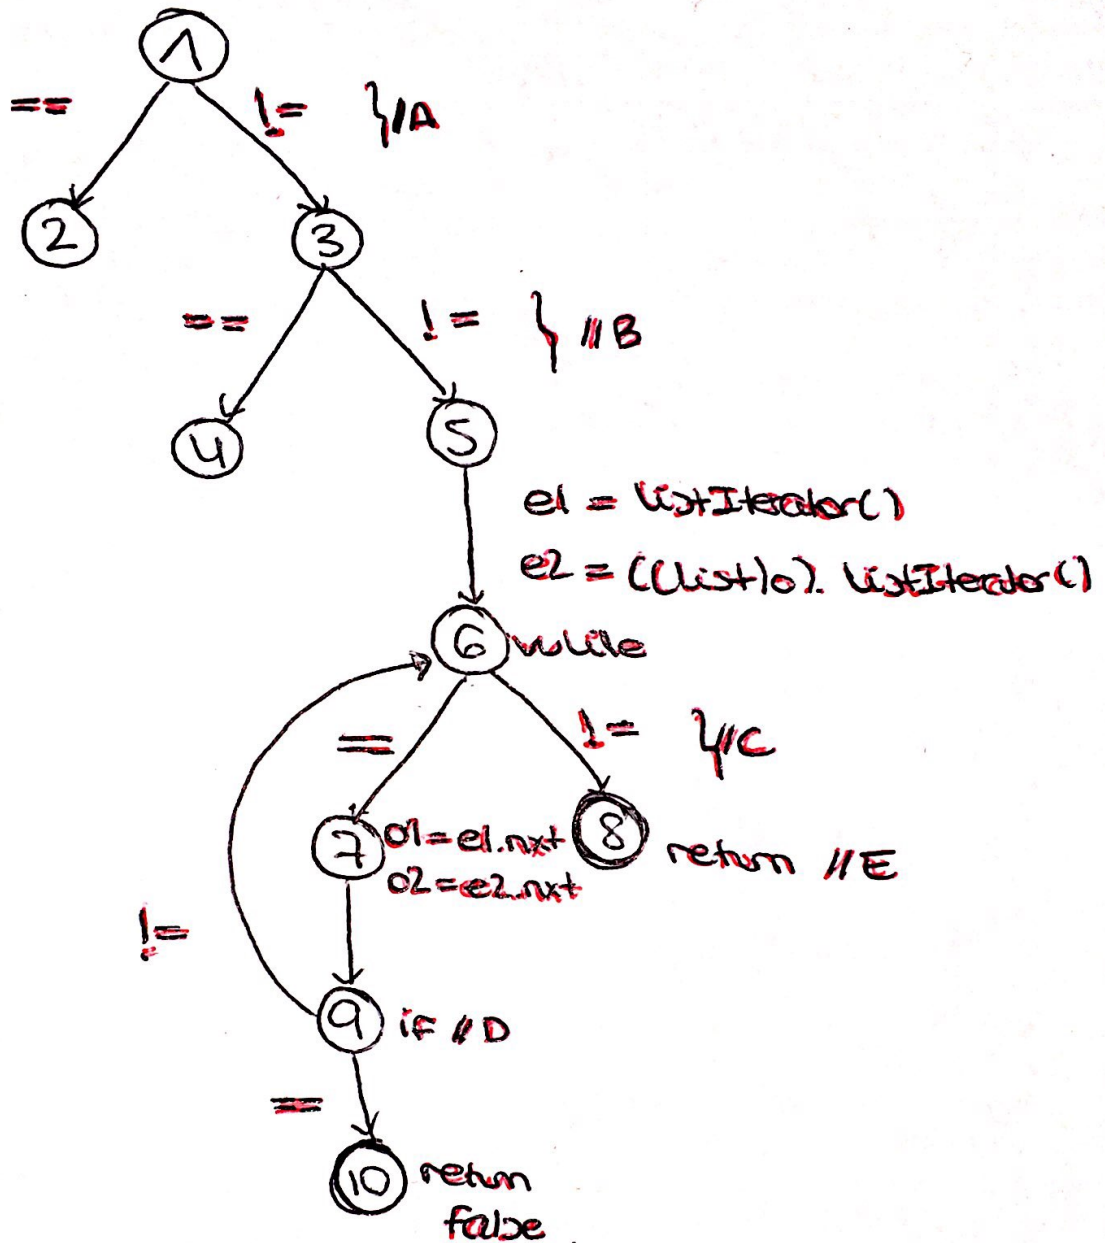 1
== != }//A
2 3
== != } //B
4 5
e1 = listIterator()
e2 = ((list)o). listIterator()
6 while
== != }//C
7 o1=e1.nxt
o2=e2.nxt
8 return //E
!=
9 if //D
==
10 return
false